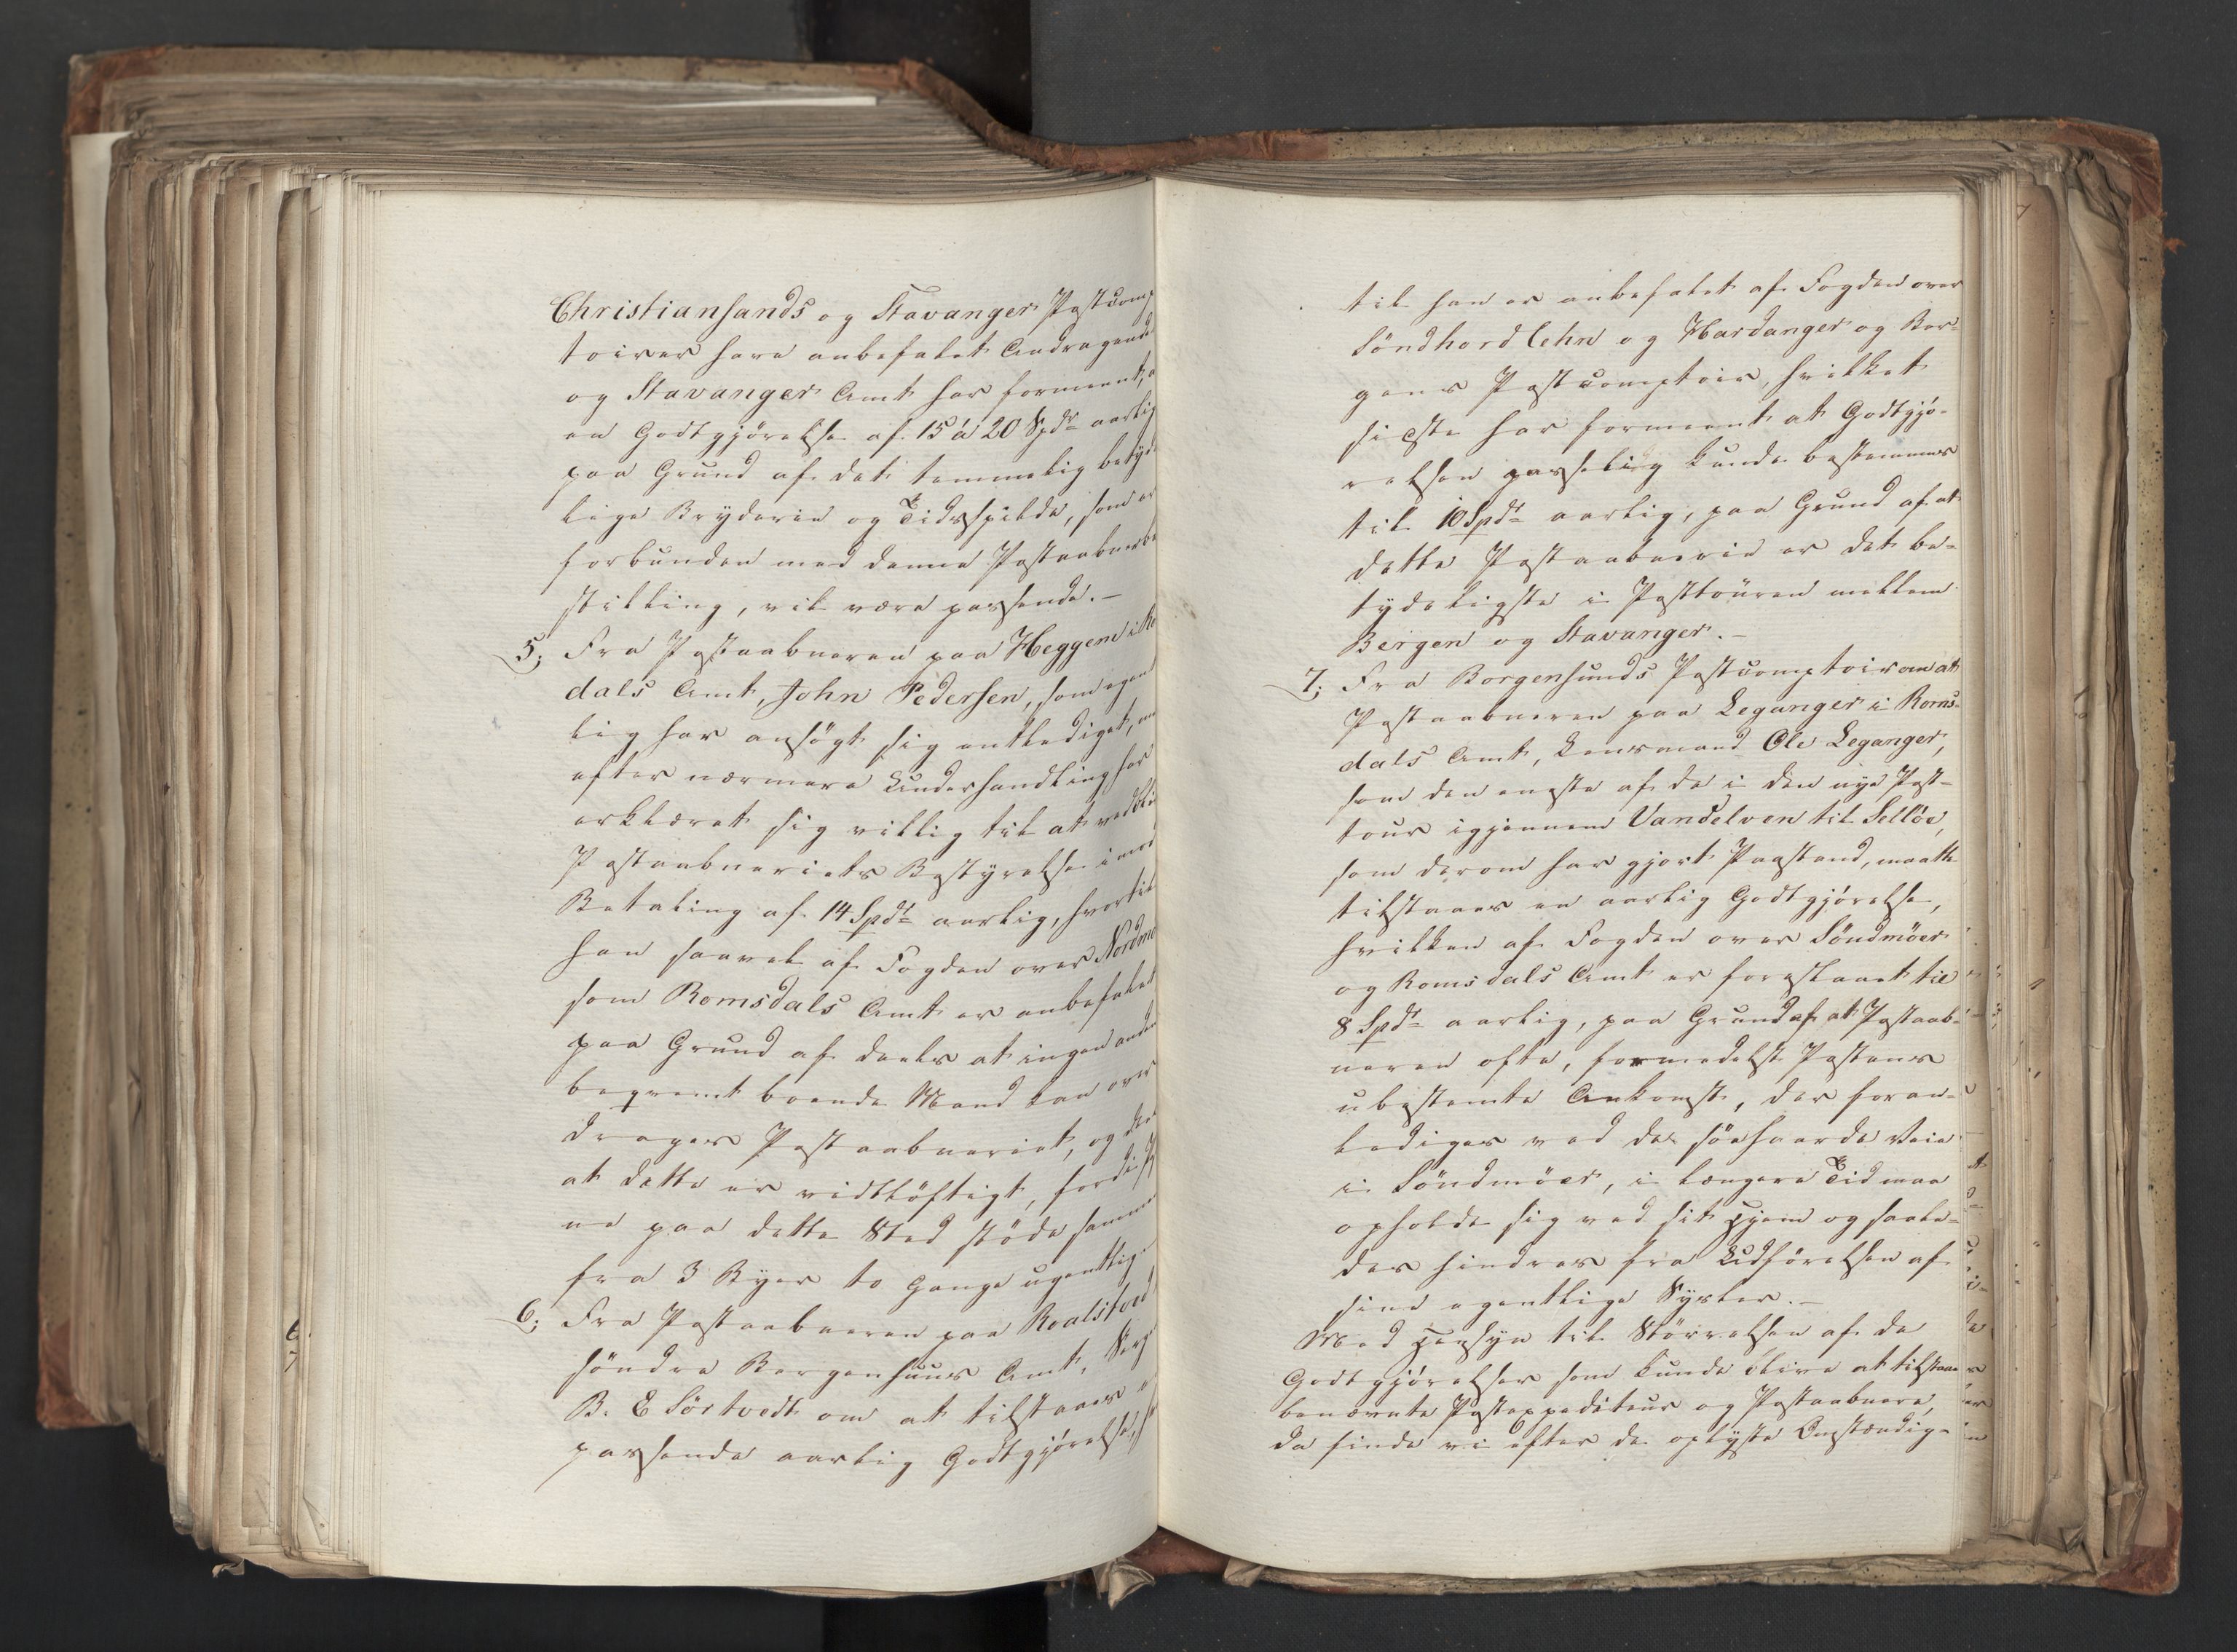 Christiansands og Stavanger Postcomp
toirer have anbefalet Andragende
og Stavanger Amt har formeent,
en Godtgjørelse af 15 à 20 Spdr aarlig
paa Grund af det temmelig betyde
lige Bryderie og Tidsspilde, som er
forbunden med denne Postaabnerbe
stilling, vil være passende.-
5; Fra Postaabneren paa Heggem i Ro
dals Amt, John Pedersen, som egent
lig har ansøgt sig entlediget, men
efter nærmere Underhandling har
erklæret sig villig til at vedbli
Postaabneriets Bestyrelse imod
Betaling af 14 Spdr aarlig, hvortil
han saavel af Fogden over Nordmø
som Romsdals Amt er anbefalet
paa Grund af deels at ingen anden
beqvemt boende Mand kan over
drages Postaabneriet, og deels
at dette er vidtløftigt, fordi
ne paa dette Sted støde sammen
fra 3 Byer to Gange ugentlig.
6; Fra Postaabneren paa Roalstved
søndre Bergenhuus Amt,
B. E Sørtvedt om at tilstaaes
passende aarlig Godtgjørelse,
til han er anbefalet af Fogden over
Søndhordlehn og Hardanger og Ber-
gens Postcomptoir, hvilket
sidste har formeent at Godtgjø-
relsen passelig kunde bestemmes
til 10 Spdr aarlig, paa Grund af at
dette Postaabnerie er det be-
tydeligste i Posttouren mellem
Bergen og Stavanger.-
7; Fra Borgensunds Postcomptoir om at
Postaabneren paa Leganger i Roms-
dals Amt, Lensmand Ole Leganger,
som den eneste af de i den nye Post-
tour igjennem Vandelven til Selløe,
som derom har gjort Paastand, maatte
tilstaaes en aarlig Godtgjørelse,
hvilken af Fogden over Søndmöer
og Romsdals Amt er foreslaaet til
8 Spdr aarlig, paa Grund af at Postaab-
neren ofte, formedelst Postens
ubestemte Ankomst, der foran-
lediges ved de søehaarde Veie
i Søndmöer, i længere Tid maa
opholde sig ved sit Hjem og saale-
des hindres fra Udførelsen af
sine egentlige Sysler.-
Med Hensyn til Størrelsen af de
Godtgjørelser som kunde blive at tilstaae
benævnte Postexpediteur og Postaabnere,
da finde vi efter de oplyste Omstændig-